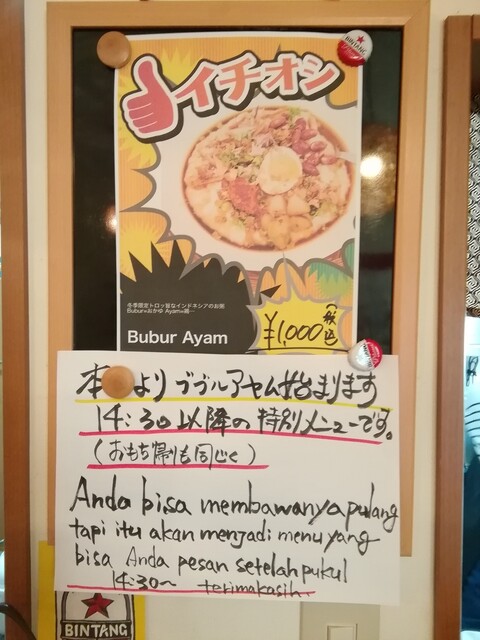 BINTANG
イチオシ
冬季限定トロッ旨なインドネシアのお粥
Bubur=おかゆ Ayam=鶏…
Bubur Ayam
¥1,000 (税込)
本 より ブブルアヤム始まります
14:30以降の特別メニューです。
(おもち帰りも同じく)
Anda bisa membawanya pulang
tapi itu akan menjadi menu yang
bisa Anda pesan setelah pukul
14:30~ terimakasih.
BINTANG